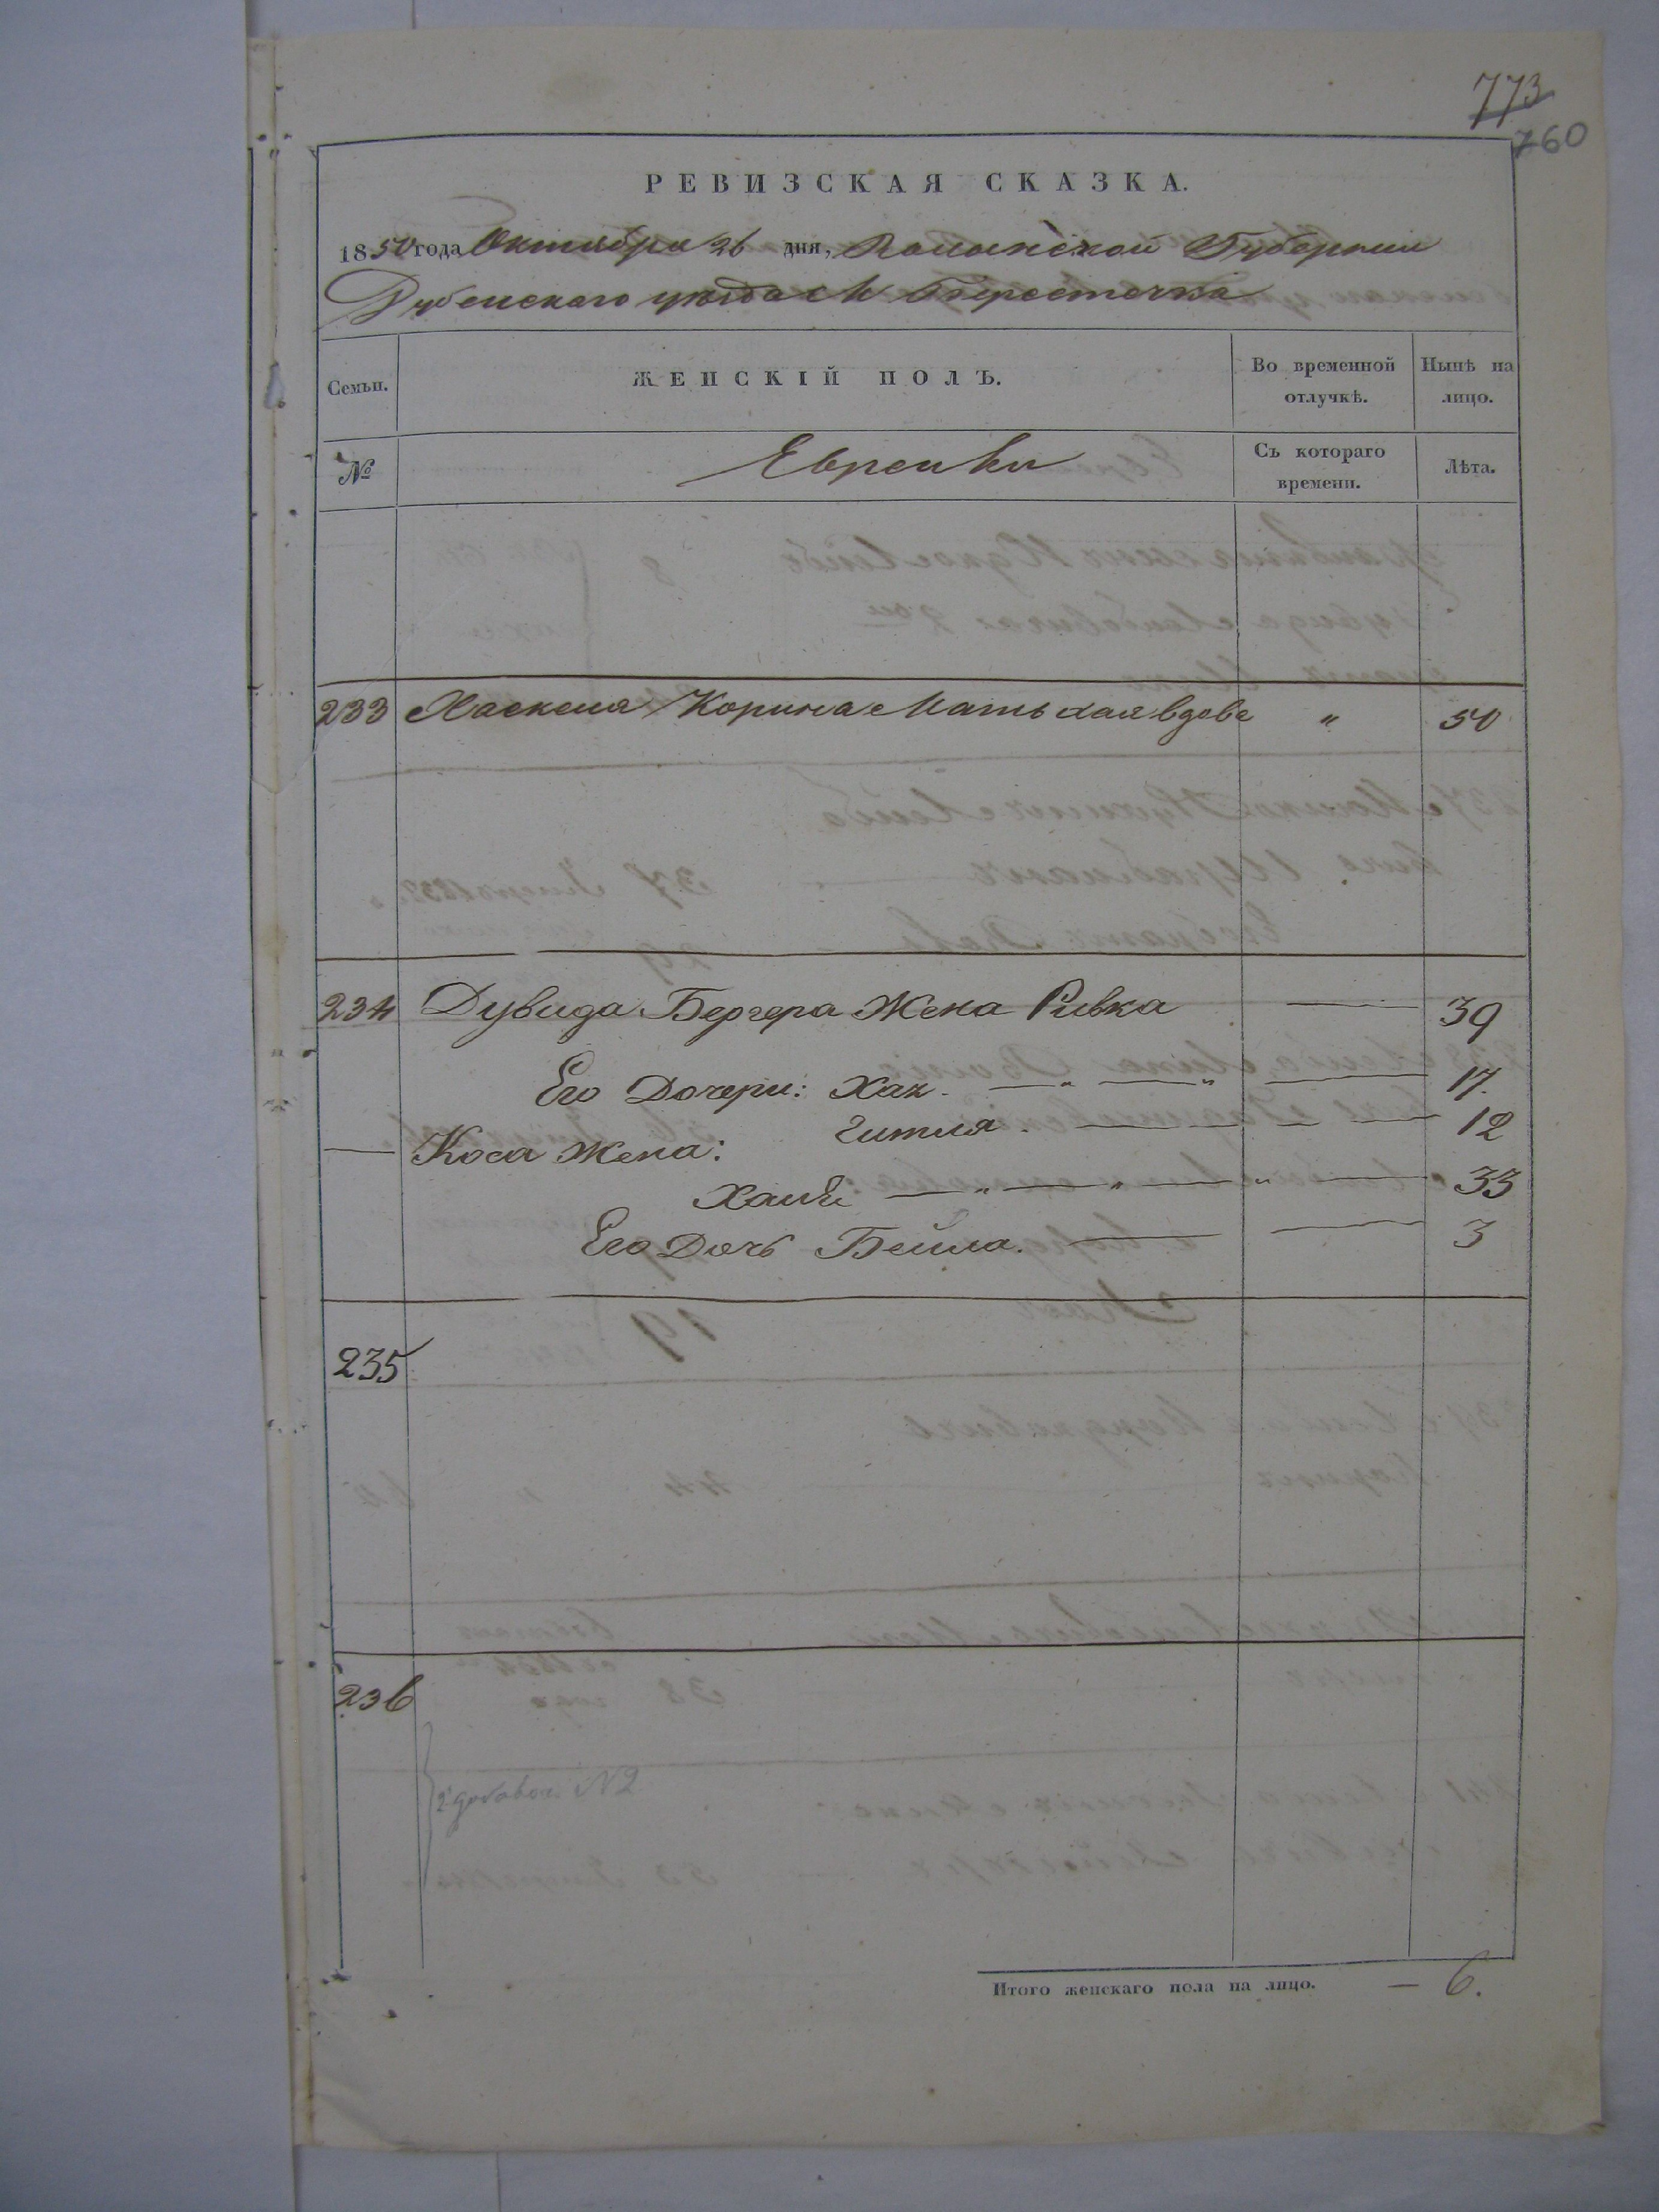 773
760
РЕВИЗСКАЯ СКАЗКА.
1850 года Октября 26 дня, Волынской Губернии
Дубенскаго уезда М Берестечка
Семьи.
ЖЕНСКІЙ ПОЛЪ.
Во временной отлучкѣ.
Нынѣ на лицо.
№
Еврейки
Съ котораго времени.
Лѣта.
233 Хаскеля Корина Мать Хая вдова " 50
234 Дувида Бергера Жена Ривка — 39
Его Дочери: Хая — " — " — 17.
Гитля — 12
— Жена:
— " — " — " — 33
Его Дочь Бейла. — 3
235
236
N2
Итого женскаго пола на лицо. — 6.